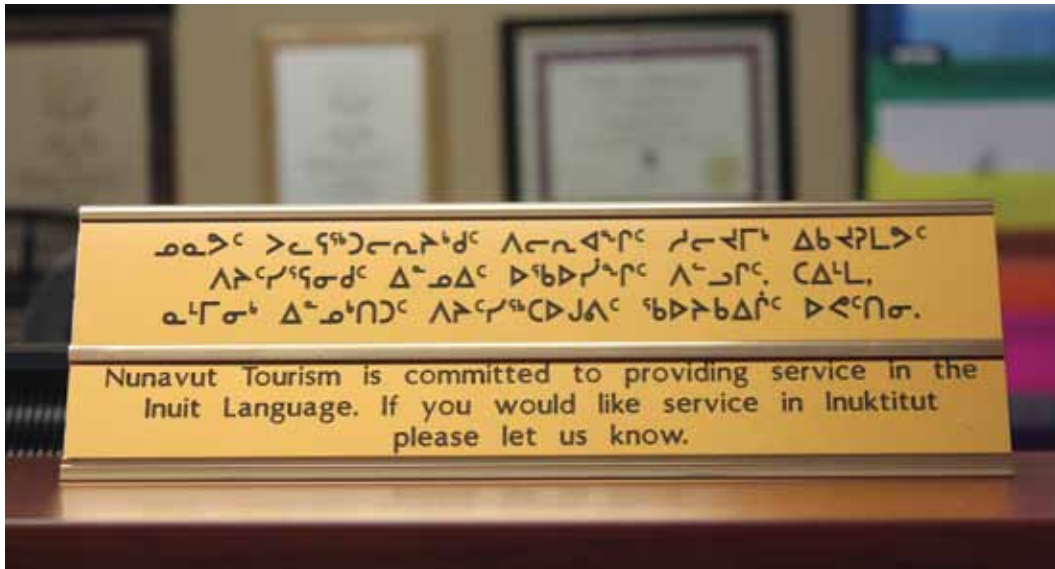 ᓄᓇᕗᑦ ᐳᓚᕋᖅᑐᓕᕆᔨᒃᑯᑦ ᐱᓕᕆᐊᖕᒋᑦ ᓱᓕᔪᒥᒃ ᐃᑲᔪᕈᒪᕗᑦ
ᐱᔨᑦᓯᕐᕋᓂᑯᑦ ᐃᓐᓄᐃᑦ ᐅᖃᐅᓰᖕᒋᑦ ᐱᓪᓗᒋᑦ. ᑕᐃᒻᒪ,
ᓇᒻᒥᓂᒃ ᐃᓐᓄᒃᑎᑐᑦ ᐱᔨᑦᓯᖅᑕᐅᒍᕕᑦ ᖃᐅᔨᑲᐃᒌᑦ ᐅᕙᑦᑎᓂ.
Nunavut Tourism is committed to providing service in the
Inuit Language. If you would like service in Inuktitut
please let us know.